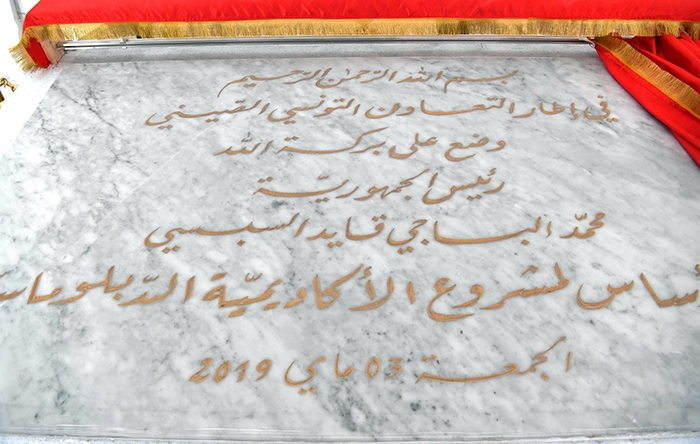 بسم الله الرحمن الرحيم
في إطار التعاون التونسي الصيني
وضع على بركة الله
رئيس الجمهوريّة
محمّد الباجي قايد السبسي
لمشروع الأكاديميّة
الجمعة 03 ماي 2019